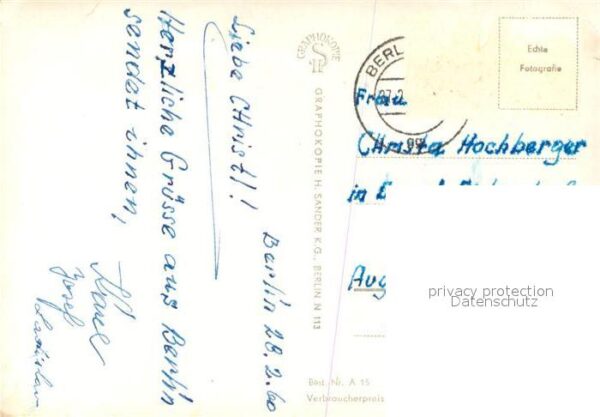 Berlin 28.2.60
Liebe CHristl!
Herzliche Grüsse aus Berlin
sendet ihnen,
Josef
Ladislav
GRAPHOKOPIE
GRAPHOKOPIE H. SANDER K.G., BERLIN N 113
Best. Nr. A 15
Verbraucherpreis
BERL
Echte
Fotografie
Frau
CHrista Hochberger
in
Aug
privacy protection
Datenschutz